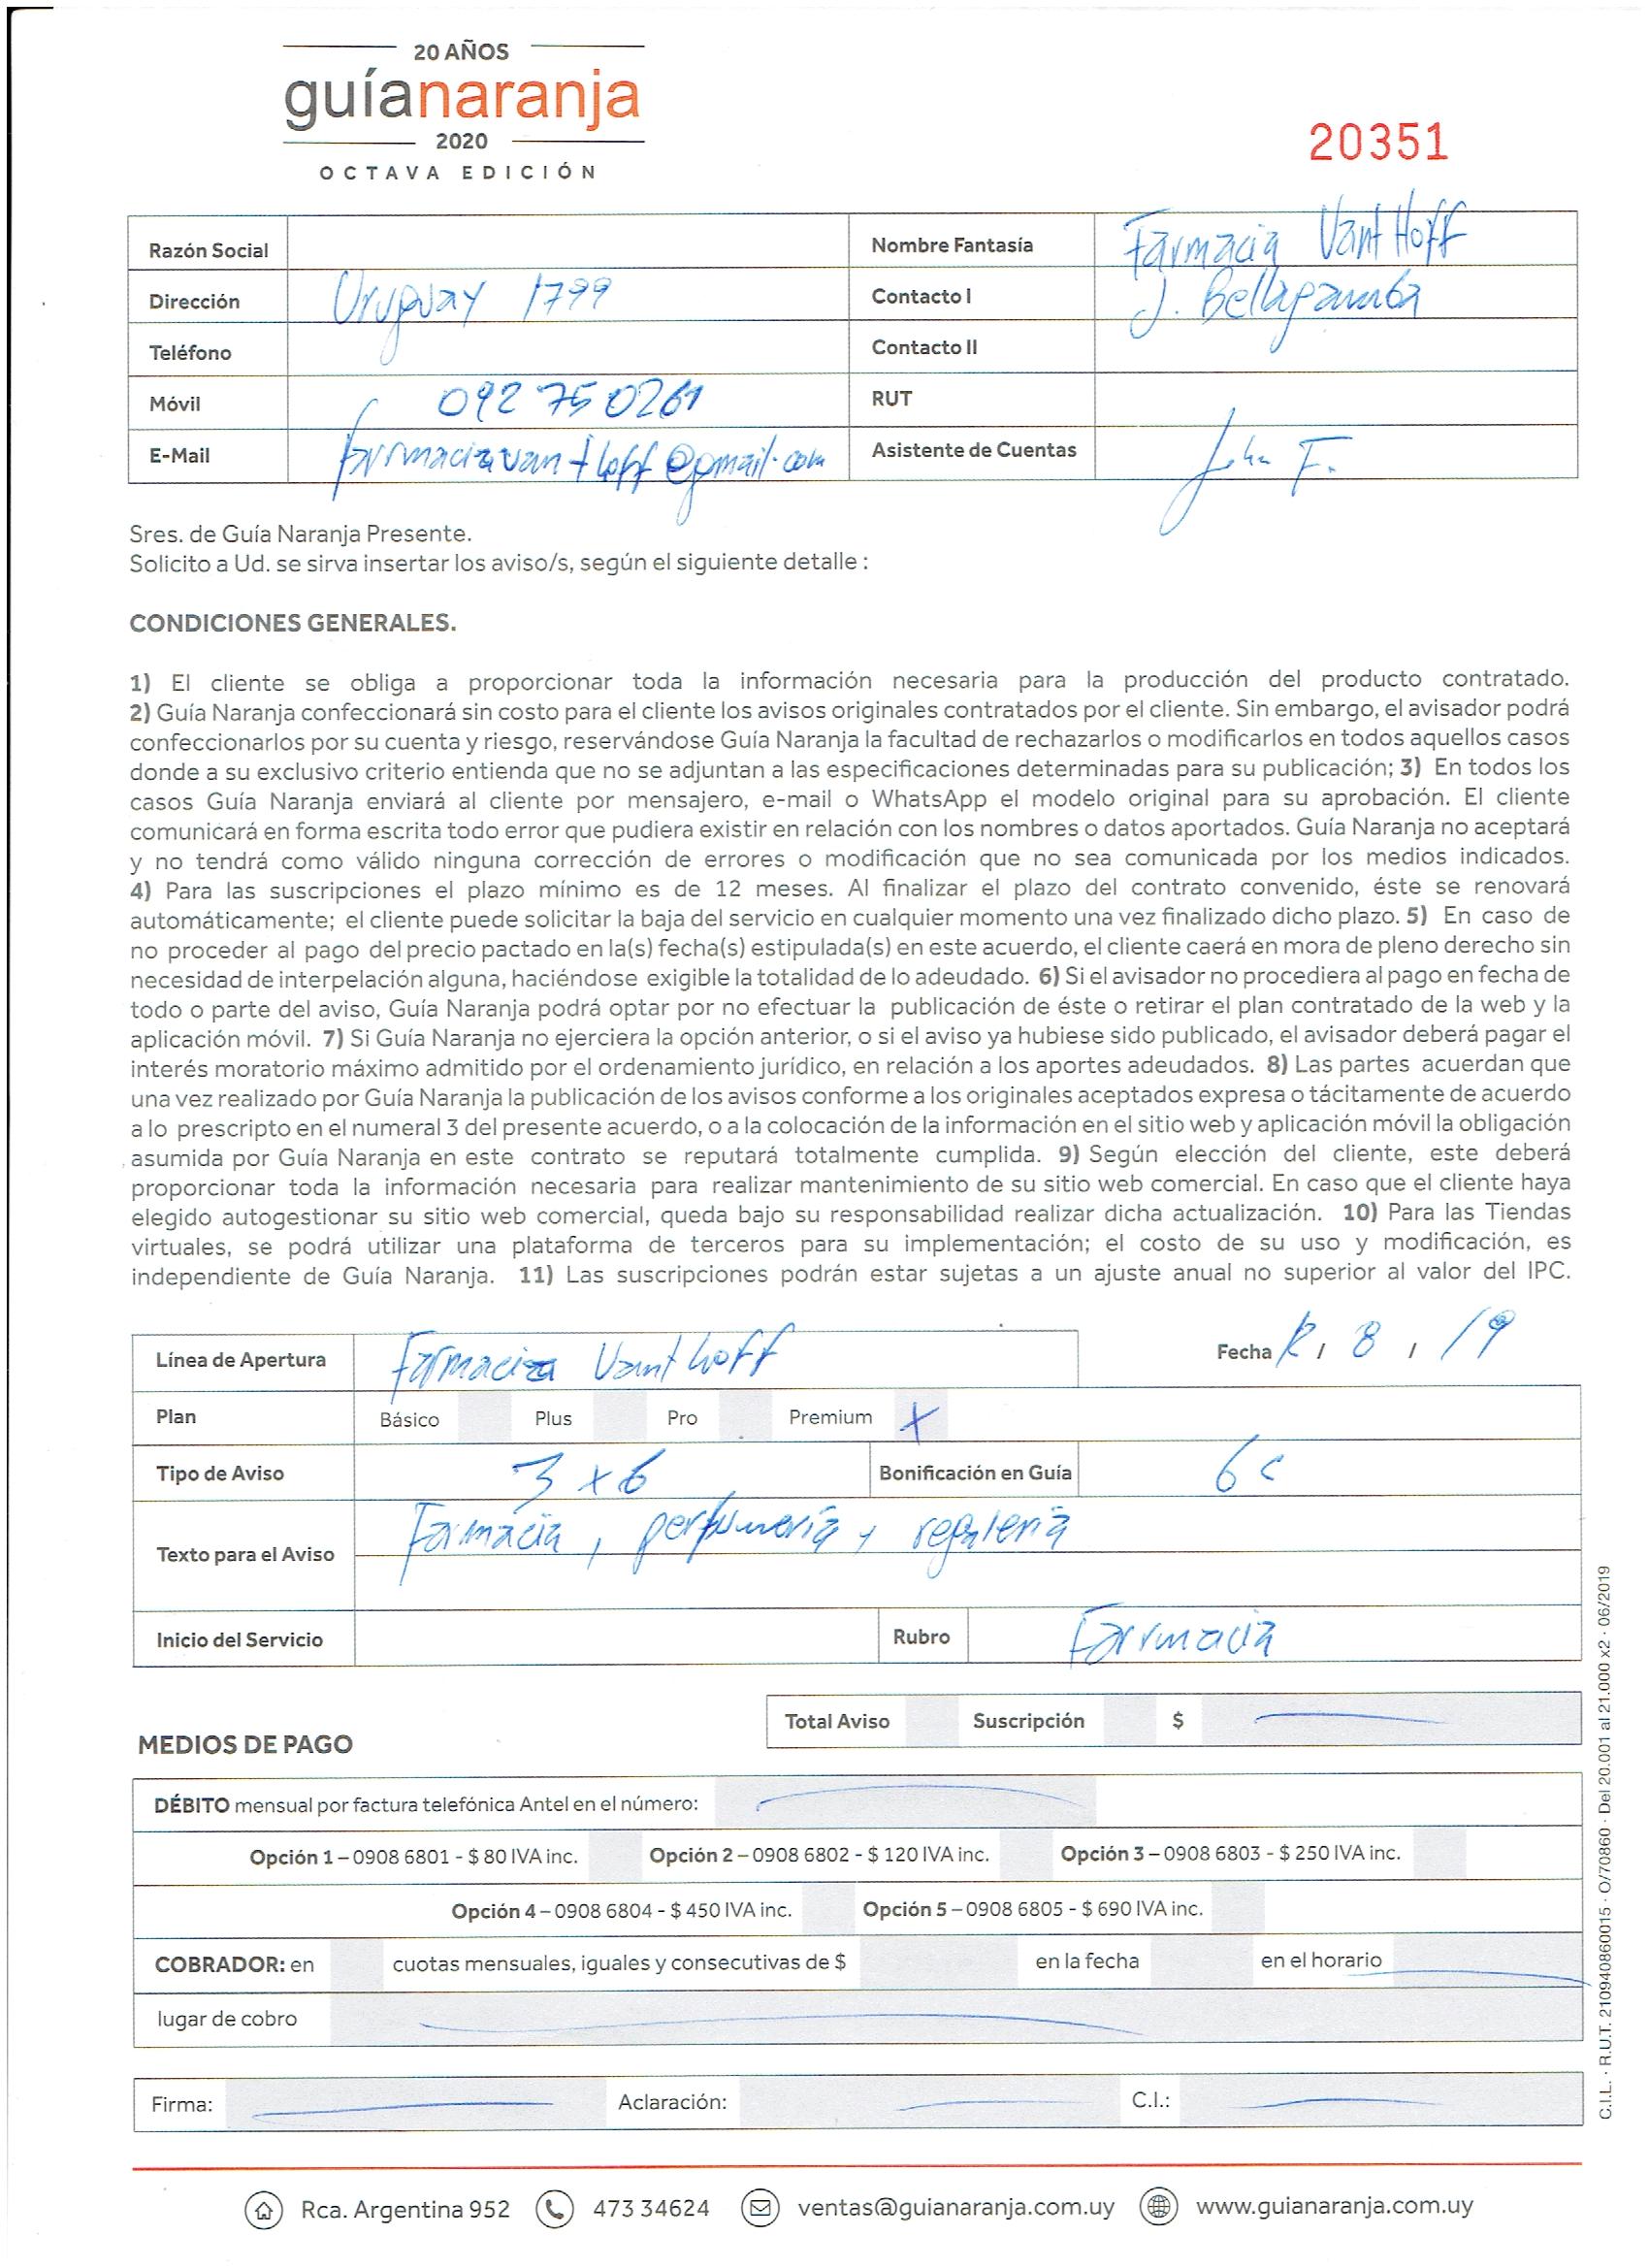 20 AÑOS
guíanaranja
2020
OCTAVA EDICIÓN
20351
Razón Social
Nombre Fantasía Farmacia Vant Hoff
Dirección Uruguay 1799
Contacto I J. Bellagamba
Teléfono
Contacto II
Móvil 092 750261
RUT
E-Mail farmaciavanthoff@gmail.com
Asistente de Cuentas John F.
Sres. de Guía Naranja Presente.
Solicito a Ud. se sirva insertar los aviso/s, según el siguiente detalle :
CONDICIONES GENERALES.
1) El cliente se obliga a proporcionar toda la información necesaria para la producción del producto contratado.
2) Guía Naranja confeccionará sin costo para el cliente los avisos originales contratados por el cliente. Sin embargo, el avisador podrá
confeccionarlos por su cuenta y riesgo, reservándose Guía Naranja la facultad de rechazarlos o modificarlos en todos aquellos casos
donde a su exclusivo criterio entienda que no se adjuntan a las especificaciones determinadas para su publicación; 3) En todos los
casos Guía Naranja enviará al cliente por mensajero, e-mail o WhatsApp el modelo original para su aprobación. El cliente
comunicará en forma escrita todo error que pudiera existir en relación con los nombres o datos aportados. Guía Naranja no aceptará
y no tendrá como válido ninguna corrección de errores o modificación que no sea comunicada por los medios indicados.
4) Para las suscripciones el plazo mínimo es de 12 meses. Al finalizar el plazo del contrato convenido, éste se renovará
automáticamente; el cliente puede solicitar la baja del servicio en cualquier momento una vez finalizado dicho plazo. 5) En caso de
no proceder al pago del precio pactado en la(s) fecha(s) estipulada(s) en este acuerdo, el cliente caerá en mora de pleno derecho sin
necesidad de interpelación alguna, haciéndose exigible la totalidad de lo adeudado. 6) Si el avisador no procediera al pago en fecha de
todo o parte del aviso, Guía Naranja podrá optar por no efectuar la publicación de éste o retirar el plan contratado de la web y la
aplicación móvil. 7) Si Guía Naranja no ejerciera la opción anterior, o si el aviso ya hubiese sido publicado, el avisador deberá pagar el
interés moratorio máximo admitido por el ordenamiento jurídico, en relación a los aportes adeudados. 8) Las partes acuerdan que
una vez realizado por Guía Naranja la publicación de los avisos conforme a los originales aceptados expresa o tácitamente de acuerdo
a lo prescripto en el numeral 3 del presente acuerdo, o a la colocación de la información en el sitio web y aplicación móvil la obligación
asumida por Guía Naranja en este contrato se reputará totalmente cumplida. 9) Según elección del cliente, este deberá
proporcionar toda la información necesaria para realizar mantenimiento de su sitio web comercial. En caso que el cliente haya
elegido autogestionar su sitio web comercial, queda bajo su responsabilidad realizar dicha actualización. 10) Para las Tiendas
virtuales, se podrá utilizar una plataforma de terceros para su implementación; el costo de su uso y modificación, es
independiente de Guía Naranja. 11) Las suscripciones podrán estar sujetas a un ajuste anual no superior al valor del IPC.
Línea de Apertura Farmacia Vant hoff
Fecha / 8 / 19
Plan Básico Plus Pro Premium X
Tipo de Aviso 3 x 6
Bonificación en Guía 6c
Texto para el Aviso Farmacia, perfumería y regalería
Inicio del Servicio
Rubro Farmacia
Total Aviso Suscripción $
MEDIOS DE PAGO
DÉBITO mensual por factura telefónica Antel en el número:
Opción 1 – 0908 6801 - $ 80 IVA inc. Opción 2 – 0908 6802 - $ 120 IVA inc. Opción 3 – 0908 6803 - $ 250 IVA inc.
Opción 4 – 0908 6804 - $ 450 IVA inc. Opción 5 – 0908 6805 - $ 690 IVA inc.
COBRADOR: en cuotas mensuales, iguales y consecutivas de $ en la fecha en el horario
lugar de cobro
Firma: Aclaración: C.I.:
C.I.L. · R.U.T. 210940860015 · O/70860 · Del 20.001 al 21.000 x2 · 06/2019
Rca. Argentina 952 473 34624 ventas@guianaranja.com.uy www.guianaranja.com.uy